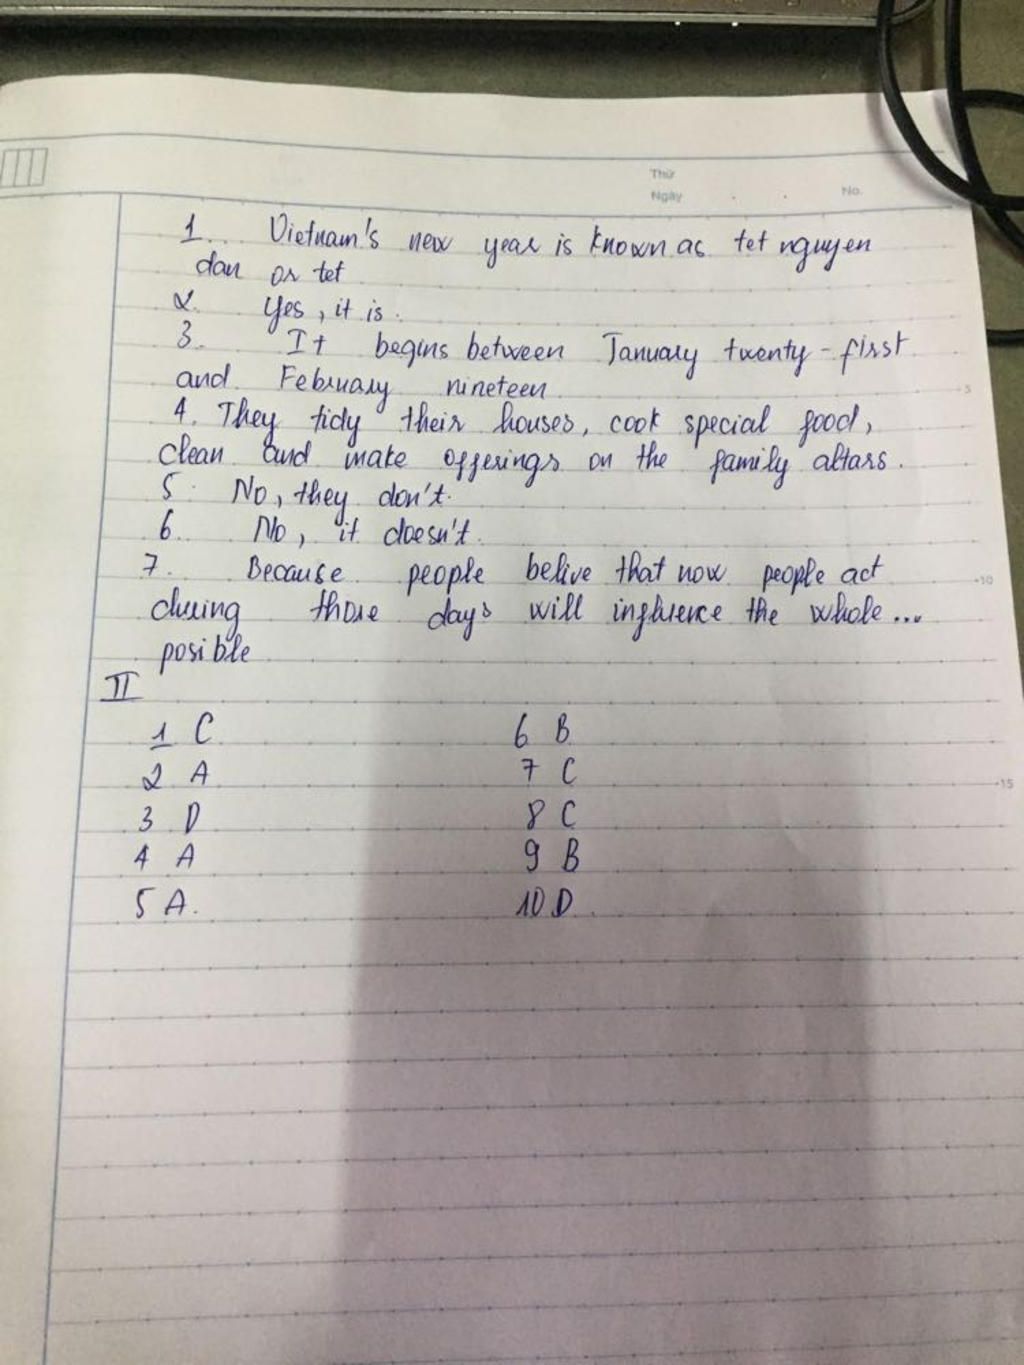 Thứ
Ngày No.
1. Vietnam's new year is known as tet nguyen
dan or tet
2. Yes, it is.
3. It begins between January twenty-first
and February nineteen
4. They tidy their houses, cook special food,
clean and make offerings on the family altars.
5. No, they don't.
6. No, it doesn't.
7. Because people belive that now people act
during those days will influence the whole...
posible
II
1 C 6 B
2 A 7 C
3 D 8 C
4 A 9 B
5 A. 10 D
5
10
15